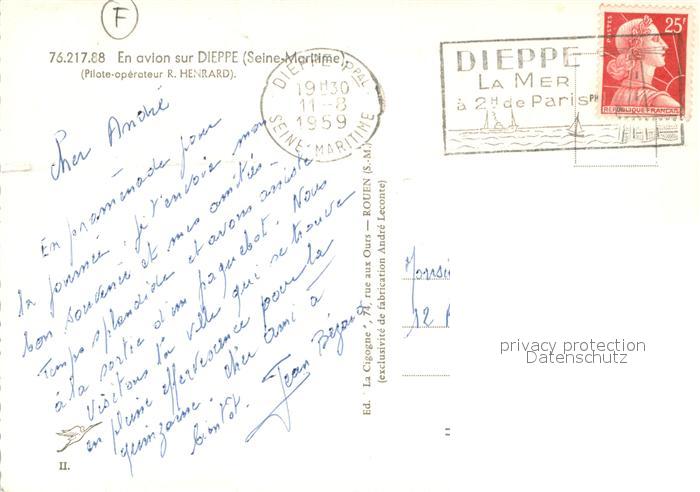 F
76.217.88 En avion sur DIEPPE (Seine-Maritime).
(Pilote-opérateur R. HENRARD).
DIEPPE PPAL
19H30
11-8
1959
SEINE-MARITIME
DIEPPE
LA MER
à 2H de Paris
POSTES
25F
REPUBLIQUE FRANÇAISE
Cher André
En promenade pour
la journée, je t'envoie mon
bon souvenir et mes amitiés -
Temps splendide et avons assisté
à la sortie d'un paquebot. Nous
visitons la ville qui se trouve
en pleine effervescence pour la
quinzaine. Cher ami à
bientôt. Jean
Ed. "La Cigogne", 74, rue aux Ours — ROUEN (S.-M.)
(exclusivité de fabrication André Leconte)
Monsie
12
privacy protection
Datenschutz
II.